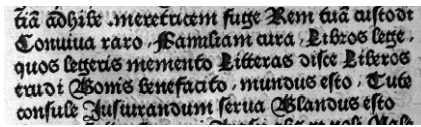 tiã adhibe .meretricem fuge Rem tuã custodi
Conuiua raro . Familiam cura . Libros lege .
quos legeris memento Litteras disce Liberos
erudi Bonis benefacito . mundus esto . Tute
consule Iusiurandum serua Blandus esto